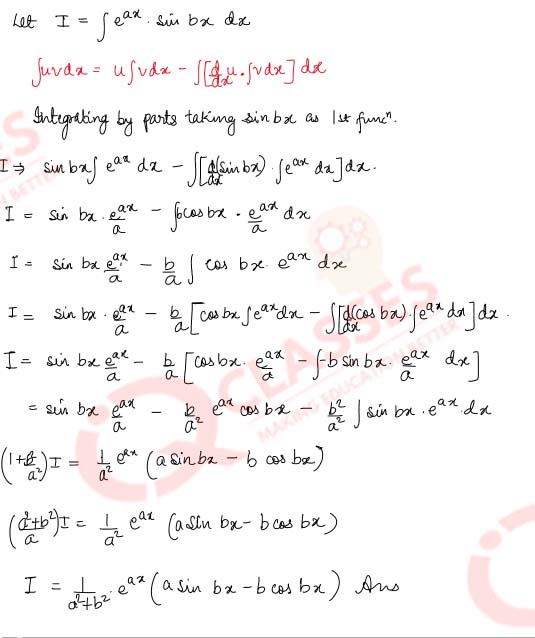 Let I = ∫ e^{ax} · sin bx dx
∫uvdx = u∫vdx - ∫[d/dx u · ∫vdx] dx
Integrating by parts taking sin bx as 1st funcⁿ.
I ⇒ sin bx ∫ e^{ax} dx - ∫[d/dx (sin bx) · ∫e^{ax} dx] dx.
I = sin bx · e^{ax}/a - ∫b cos bx · e^{ax}/a dx
I = sin bx e^{ax}/a - b/a ∫ cos bx · e^{ax} dx
I = sin bx · e^{ax}/a - b/a [cos bx ∫ e^{ax} dx - ∫[d/dx (cos bx) · ∫e^{ax} dx] dx .
I = sin bx e^{ax}/a - b/a [cos bx · e^{ax}/a - ∫-b sin bx · e^{ax}/a dx]
= sin bx e^{ax}/a - b/a² e^{ax} cos bx - b²/a² ∫ sin bx · e^{ax} · dx
I = 1/a² e^{ax} (a sin bx - b cos bx)
I = 1/a² e^{ax} (a sin bx - b cos bx)
I = 1/(a²+b²) · e^{ax} (a sin bx - b cos bx) Ans
CLASSES
MAKING EDUCATION BETTER